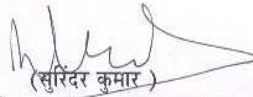 (सुरिंदर कुमार )